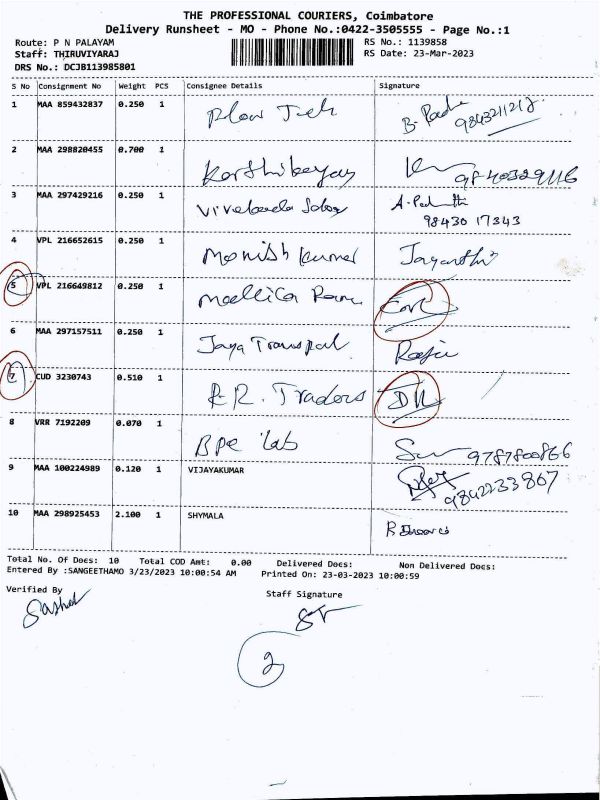 THE PROFESSIONAL COURIERS, Coimbatore
Delivery Runsheet - MO - Phone No.:0422-3505555 - Page No.:1
Route: P N PALAYAM
Staff: THIRUVIYARAJ
DRS No.: DCJB113985801
RS No.: 1139858
RS Date: 23-Mar-2023
S No Consignment No Weight PCS Consignee Details Signature
1 MAA 859432837 0.250 1 Flow Tech
9843211212
2 MAA 298820455 0.700 1 Karthikeyan 9840329116
3 MAA 297429216 0.250 1 Vivekanda
98430 17343
4 VPL 216652615 0.250 1 Monish kumar Jayanthi
5 VPL 216649812 0.250 1 Mallica
6 MAA 297157511 0.250 1 Jaya Transpal
7 CUD 3230743 0.510 1 R.R. Traders DR
8 VRR 7192209 0.070 1 Bpe lab 9787800866
9 MAA 100224989 0.120 1 VIJAYAKUMAR
9842233867
10 MAA 298925453 2.100 1 SHYMALA
Total No. Of Does: 10 Total COD Amt: 0.00 Delivered Does: Non Delivered Does:
Entered By :SANGEETHAMO 3/23/2023 10:00:54 AM Printed On: 23-03-2023 10:00:59
Verified By
Staff Signature
2